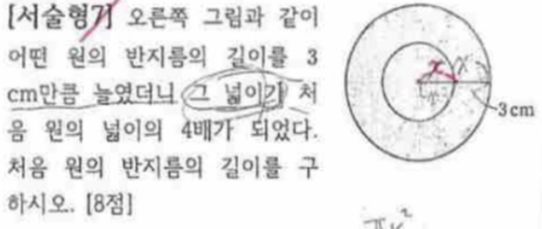 [서술형7] 오른쪽 그림과 같이
어떤 원의 반지름의 길이를 3
cm만큼 늘였더니 그 넓이가 처
음 원의 넓이의 4배가 되었다.
처음 원의 반지름의 길이를 구
하시오. [8점]
x
3cm